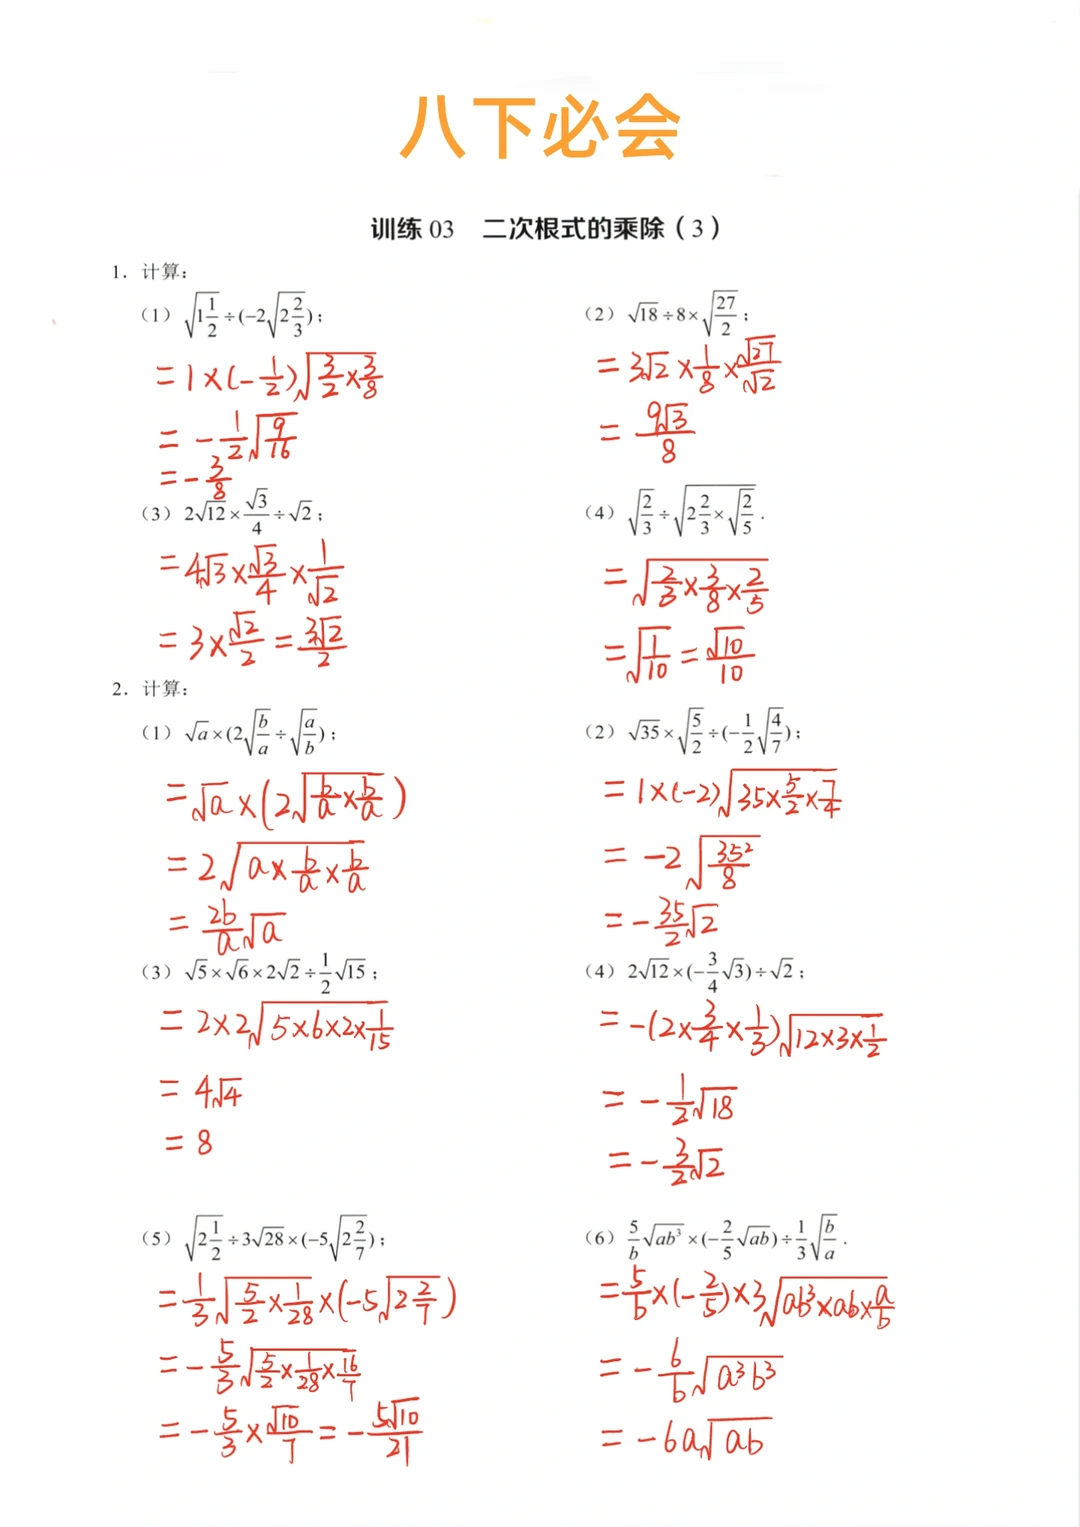 八下必会
训练 03 二次根式的乘除（3）
1．计算：
（1）√(1 1/2)÷(−2√(2 2/3))；
=1×(-1/2)√(3/2×3/8)
=-1/2√(9/16)
=-3/8
（2）√18÷8×√(27/2)；
=3√2×1/8×√27/√2
=9√3/8
（3）2√12×√3/4÷√2；
=4√3×√3/4×1/√2
=3×√2/2=3√2/2
（4）√(2/3)÷√(2 2/3×√(2/5)．
=√(2/3×3/8×2/5)
=√(1/10)=√10/10
2．计算：
（1）√a×(2√(b/a)÷√(a/b))；
=√a×(2√(b/a×b/a))
=2√(a×b/a×b/a)
=2b/a√a
（2）√35×√(5/2)÷(−1/2√(4/7))；
=1×(-2)√(35×5/2×7/4)
=-2√(35²/8)
=-35/2√2
（3）√5×√6×2√2÷1/2√15；
=2×2√(5×6×2×1/15)
=4√4
=8
（4）2√12×(−3/4√3)÷√2；
=-(2×3/4×1/3)√(12×3×1/2)
=-1/2√18
=-3/2√2
（5）√(2 1/2)÷3√28×(−5√(2 2/7))；
=1/3√(5/2×1/28)×(-5√(2 2/7))
=-5/3√(5/2×1/28×16/7)
=-5/3×√10/7=-5√10/21
（6）5/b√(ab³)×(−2/5√(ab))÷1/3√(b/a)．
=5/b×(-2/5)×3√(ab³×ab×a/b)
=-6/b√(a³b³)
=-6a√(ab)